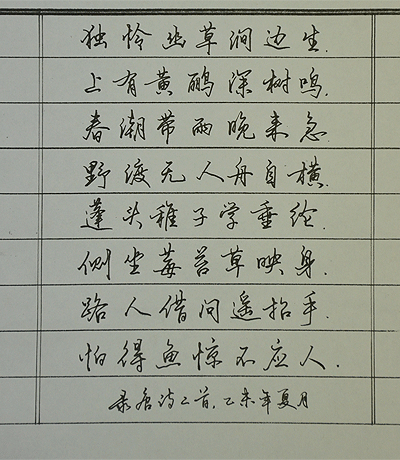 独怜幽草涧边生.
上有黄鹂深树鸣.
春潮带雨晚来急.
野渡无人舟自横.
蓬头稚子学垂纶.
侧坐莓苔草映身.
路人借问遥招手.
怕得鱼惊不应人.
录唐诗二首,乙未年夏月